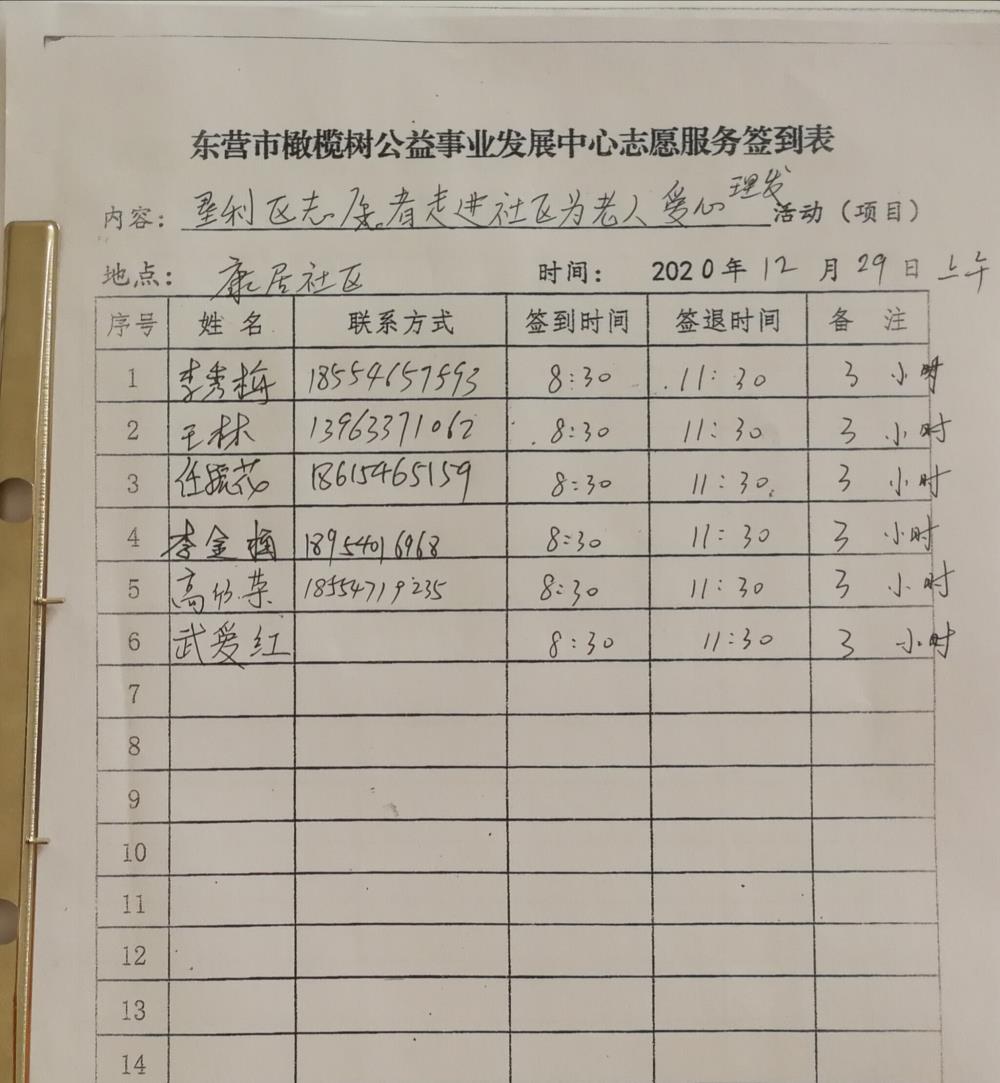 东营市橄榄树公益事业发展中心志愿服务签到表
内容：垦利区志愿者走进社区为老人爱心理发活动（项目）
地点：康居社区 时间：2020年12月29日上午
序号 姓名 联系方式 签到时间 签退时间 备注
1 李秀梅 18554657593 8:30 11:30 3小时
2 王林 13963371062 8:30 11:30 3小时
3 任 18615465159 8:30 11:30 3小时
4 李金梅 18954016968 8:30 11:30 3小时
5 高 荣 18554719235 8:30 11:30 3小时
6 武爱红 8:30 11:30 3小时
7
8
9
10
11
12
13
14